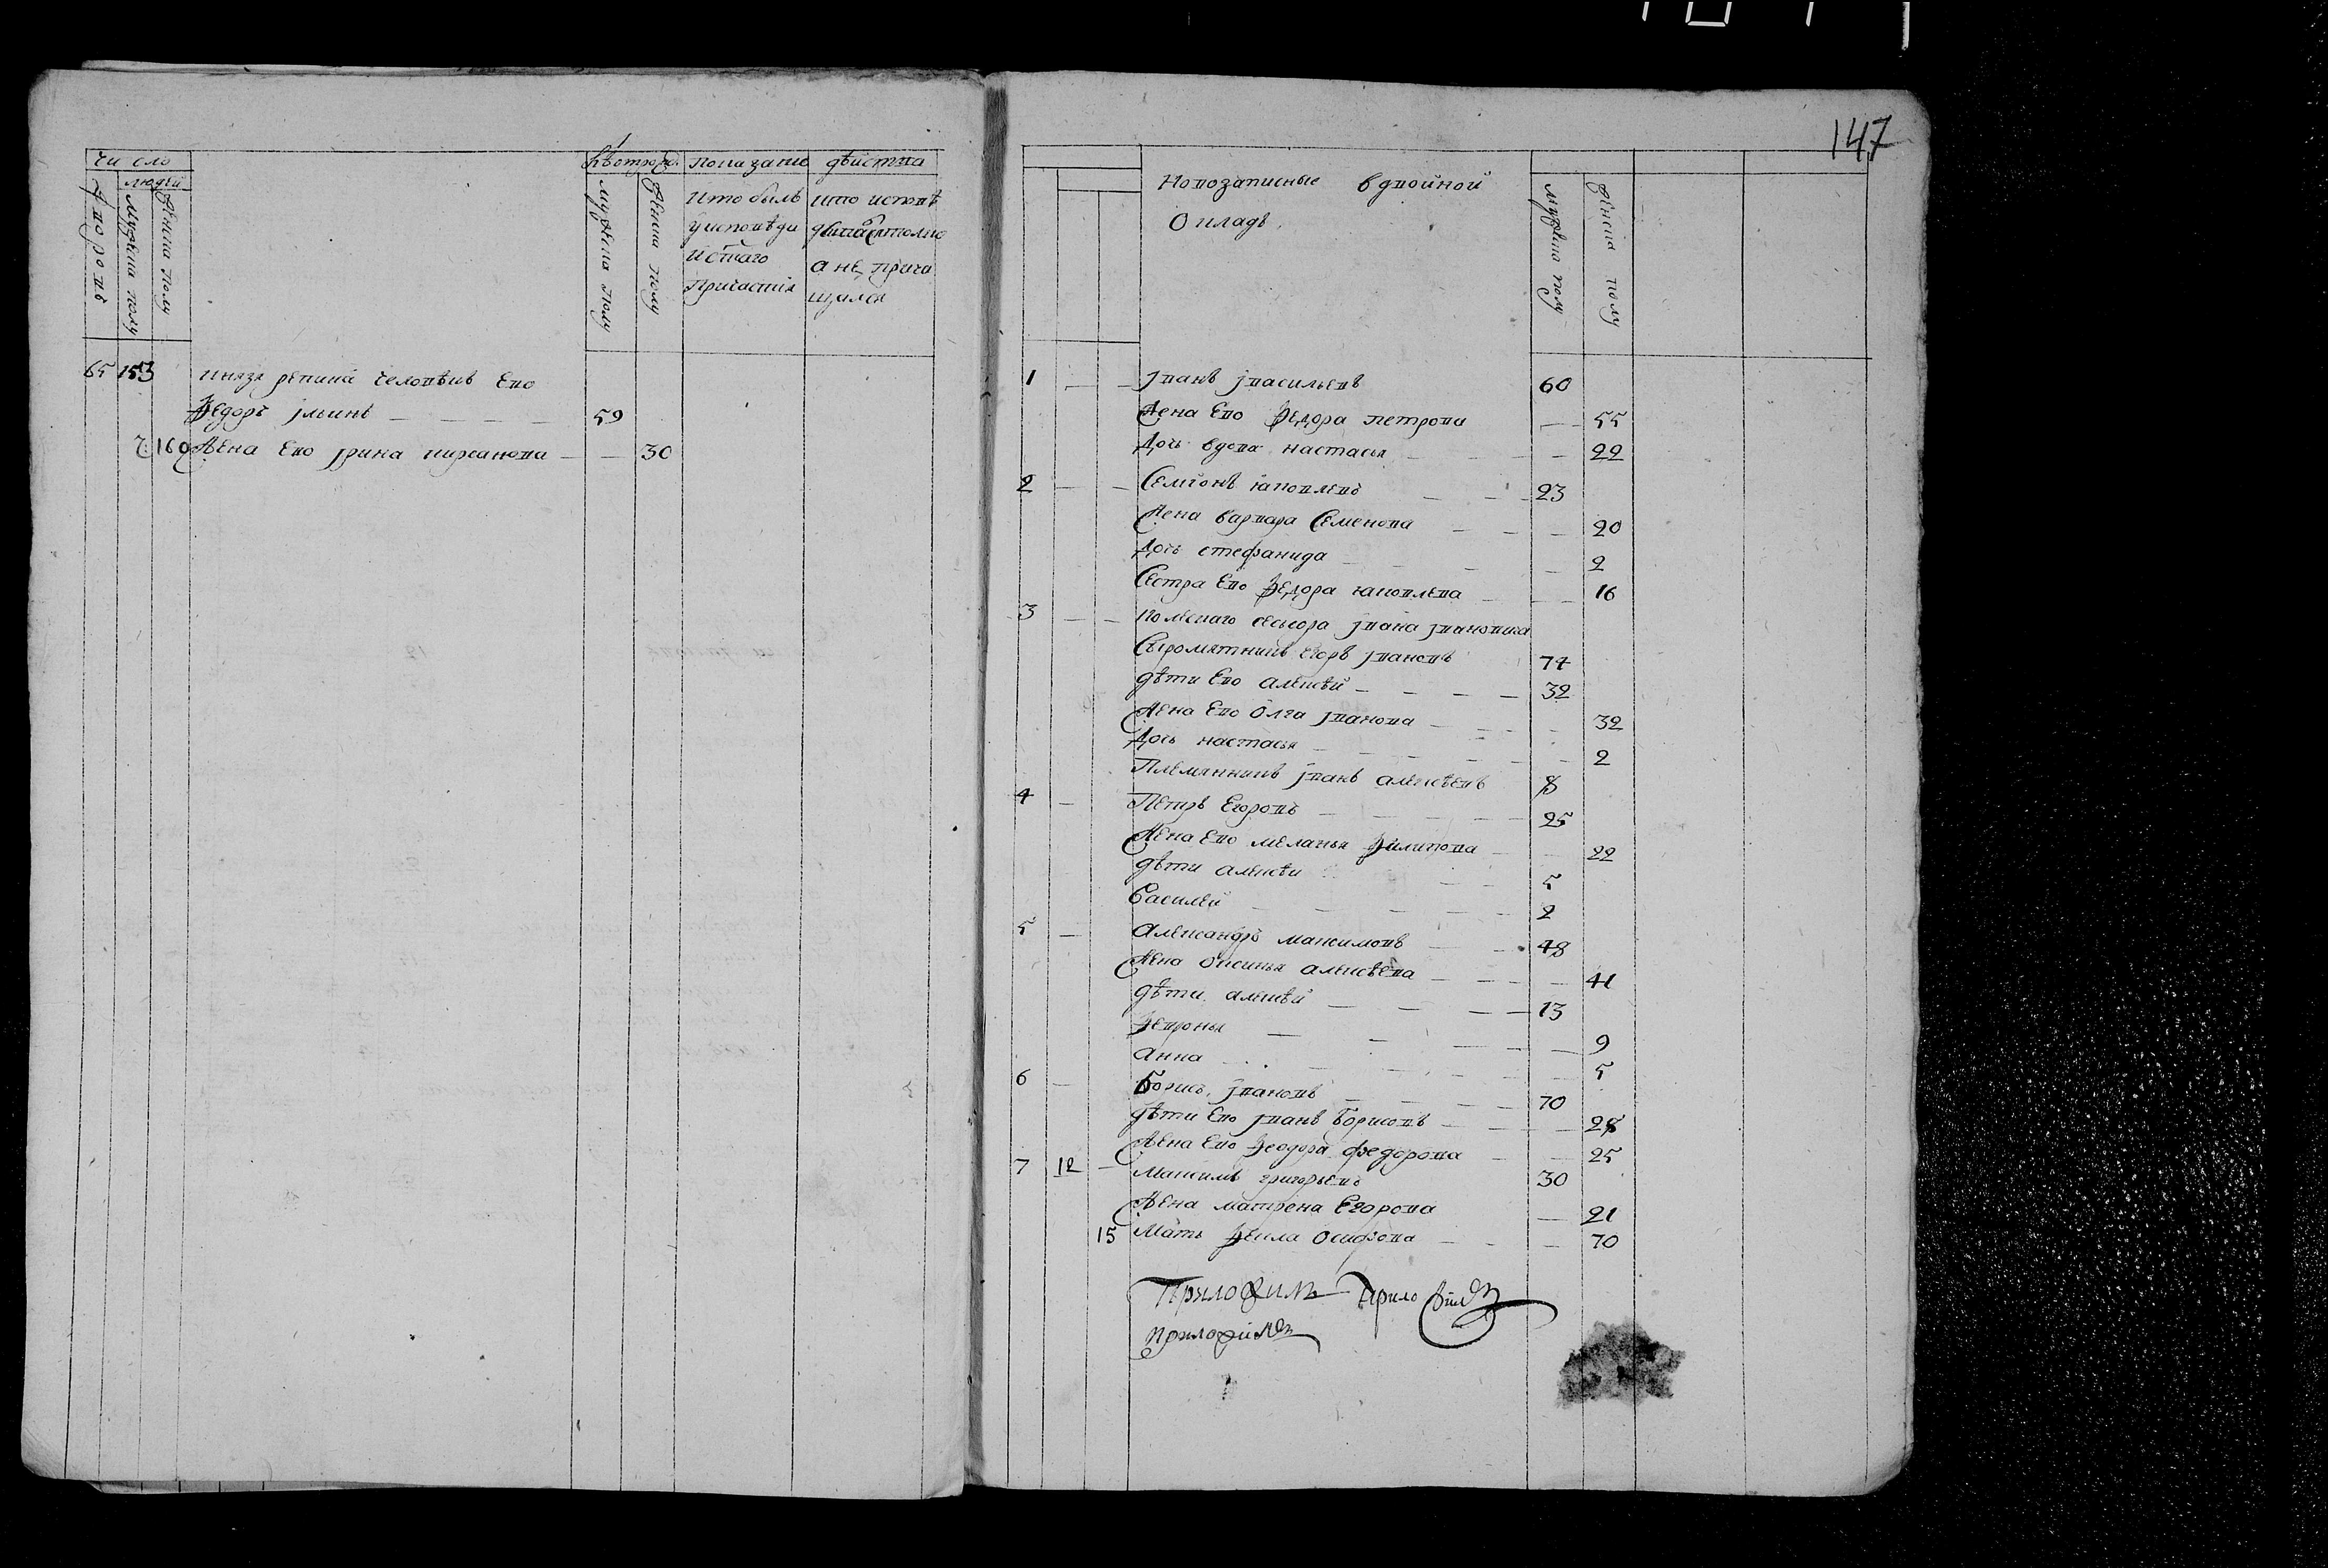 147
Число
людей
дворовъ
мужеска полу
женска полу
лѣтоотро.
мужеска полу
женска полу
показание дѣйства
кто былъ
у исповѣди
и стаго
причастія
кто исповѣ
а не прича
щался
65 153 князя репина человѣкъ Ево
Ѳедоръ Iльинъ 59
7 160 Жена Ево Iрина кирсанова 30
Новозаписные в двойной
Окладъ
мужеска полу
женска полу
1 Iванъ Iвасильевъ 60
Жена Ево Ѳедора петрова 55
Дочь вдова настасья 22
2 Семiонъ яковлевъ 23
Жена варвара Семенова 20
Дочь стефанида 2
Сестра Ево Ѳедора яковлева 16
3 полскаго Iвана Iвановича
Сыромятникъ Егоръ Iвановъ 74
дѣти Ево алексѣй 32
Жена Ево Олга Iванова 32
Дочь настасья 2
Племянникъ Iванъ алексѣевъ 8
4 Петръ Егоровъ 25
Жена Ево меланья Ѳилипова 22
дѣти алексѣй 5
Василей 2
5 александръ максимовъ 48
Жена Оксинья алексѣева 41
дѣти алексѣй 13
Ѳевронья 9
анна 5
6 Борисъ Iвановъ 70
дѣти Ево Iванъ борисовъ 28
Жена Ево Ѳеодора федорова 25
7 12 Максимъ григорьевъ 30
Жена матрена Егорова 21
15 Мать Ѳекла Осифова 70
Приложилъ Приложилъ
приложилъ